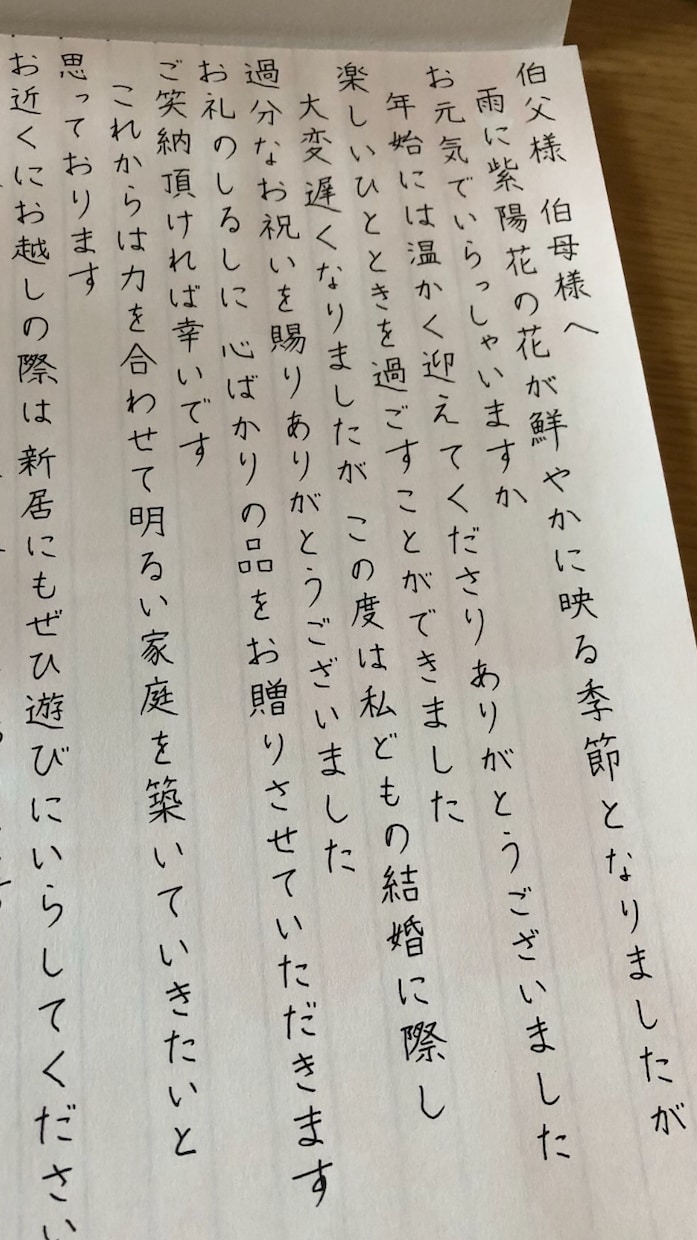 伯父様 伯母様へ
雨に紫陽花の花が鮮やかに映る季節となりましたが
お元気でいらっしゃいますか
年始には温かく迎えてくださりありがとうございました
楽しいひとときを過ごすことができました
大変遅くなりましたが この度は私どもの結婚に際し
過分なお祝いを賜りありがとうございました
お礼のしるしに 心ばかりの品をお贈りさせていただきます
ご笑納頂ければ幸いです
これからは力を合わせて明るい家庭を築いていきたいと
思っております
お近くにお越しの際は新居にもぜひ遊びにいらしてください